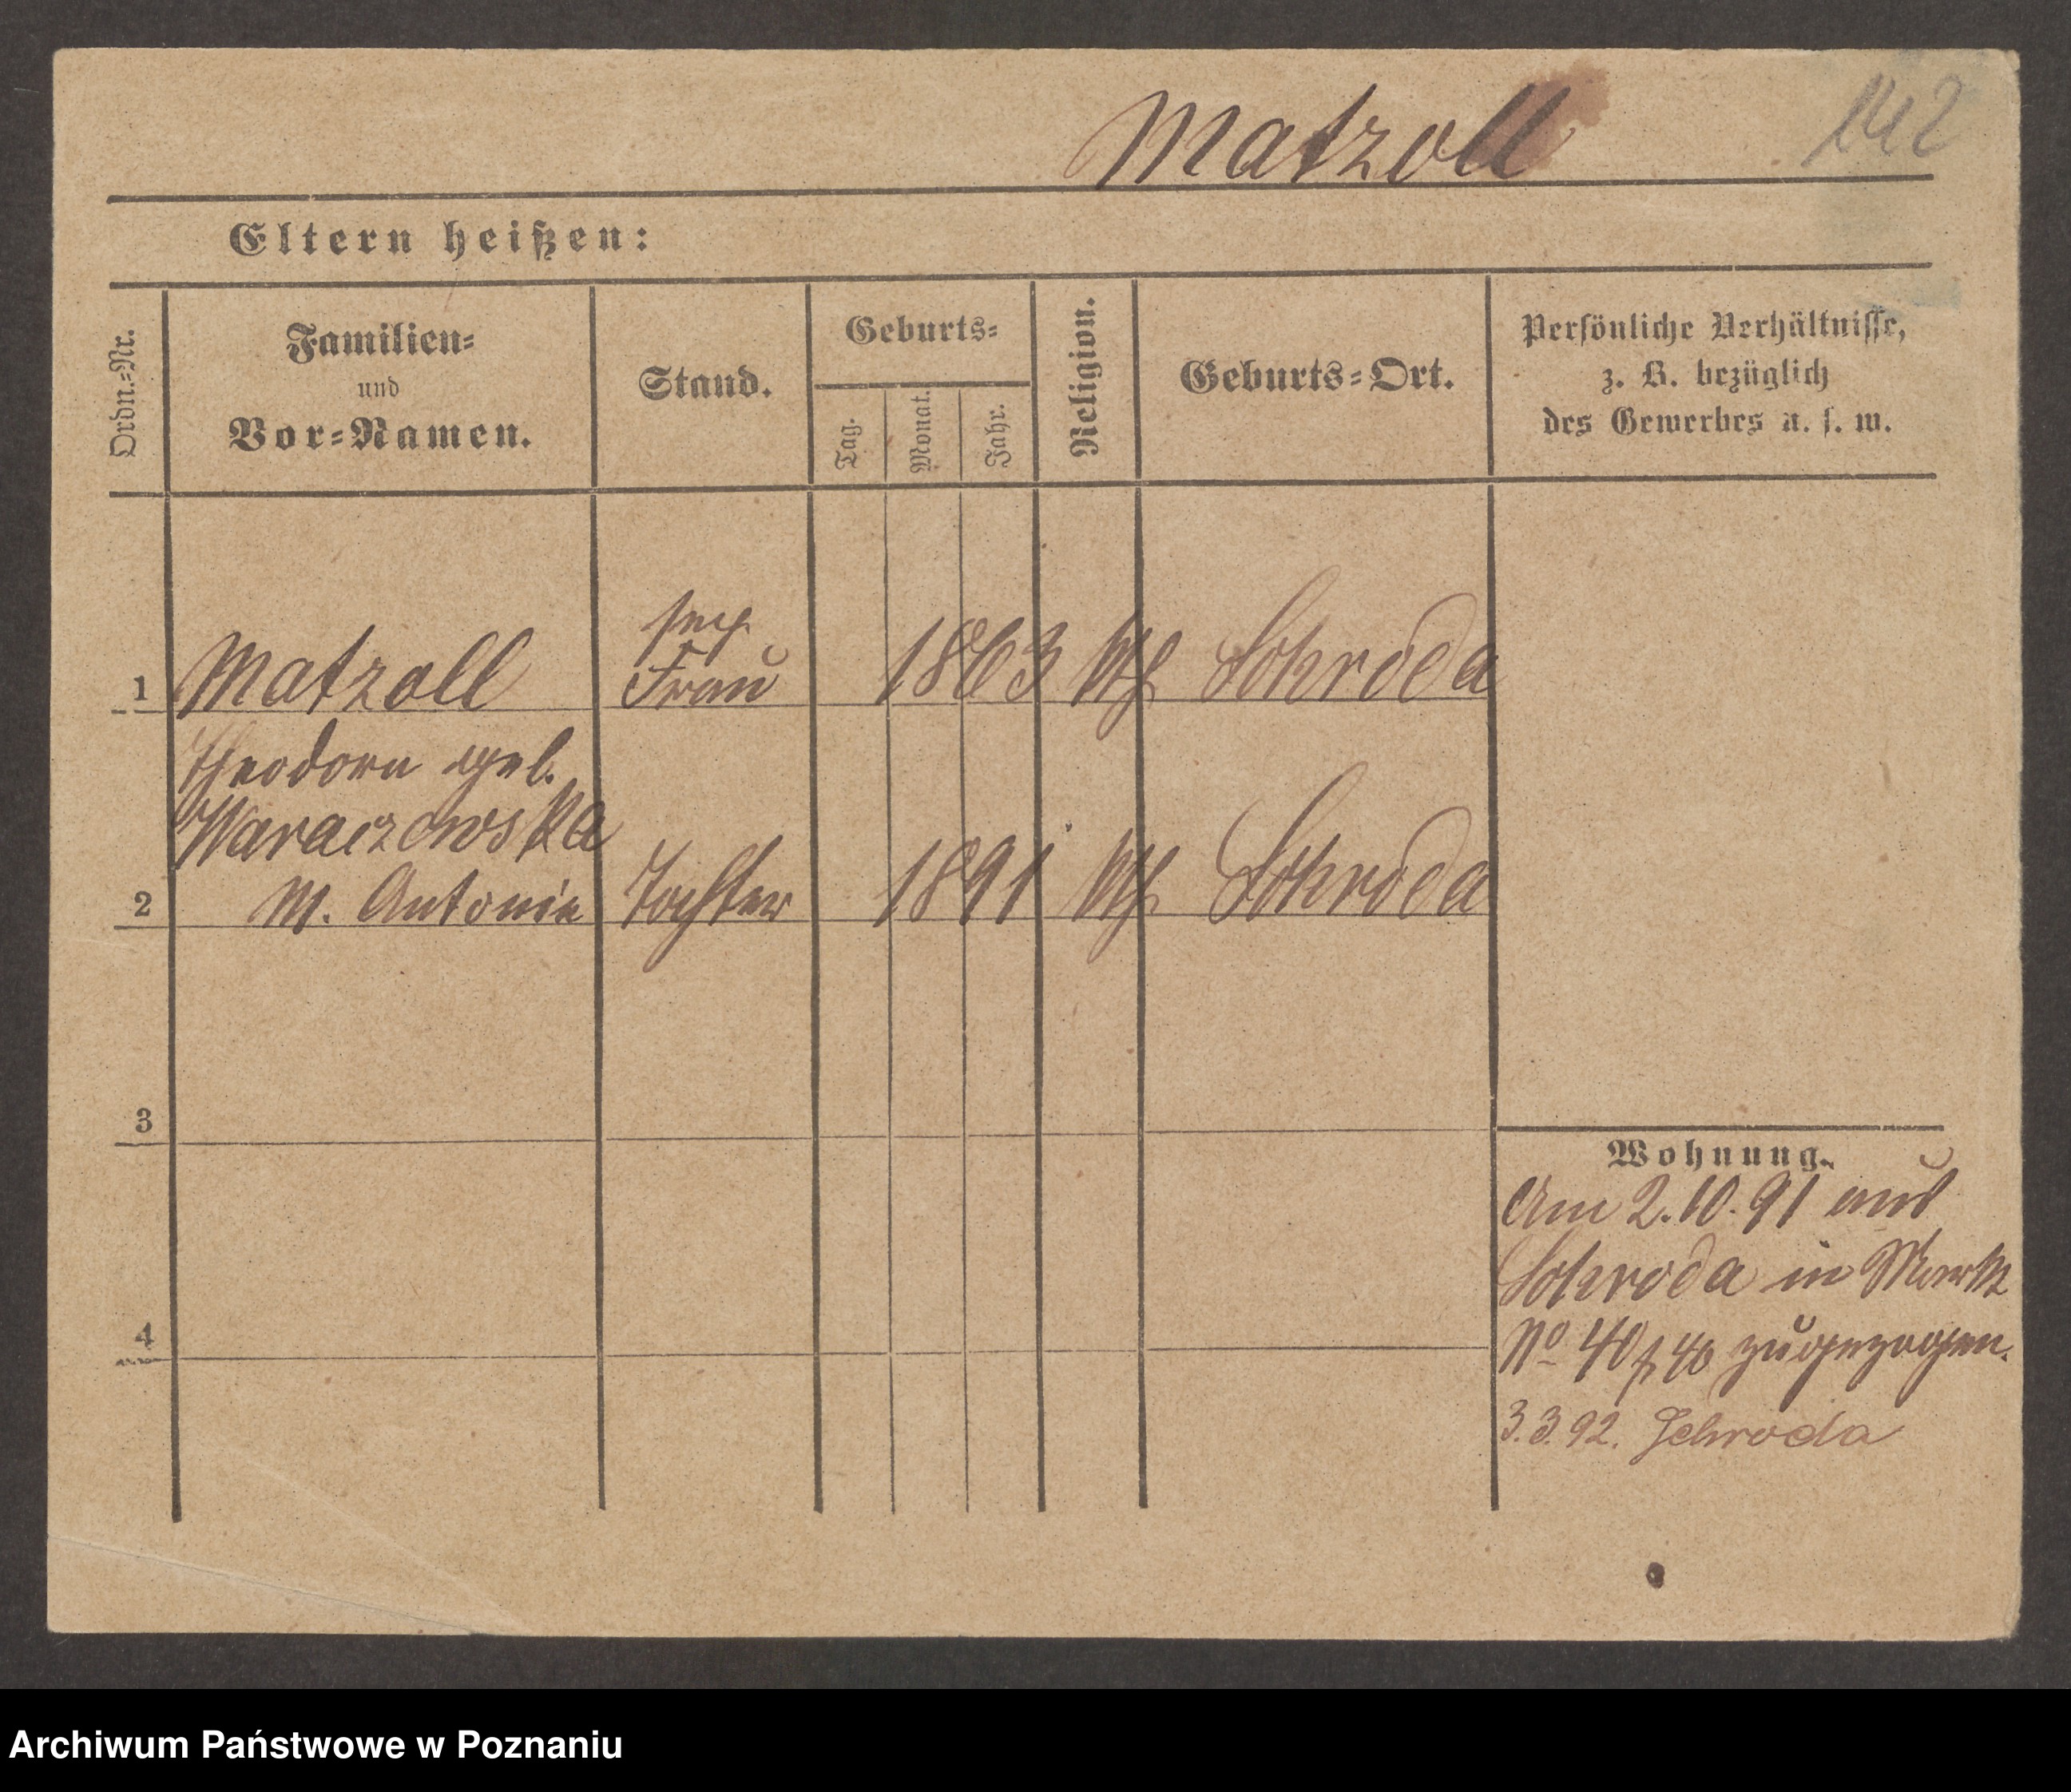 Matzoll
142
Eltern heißen:
Ordn.=Nr.
Familien=
und
Vor=Namen.
Stand.
Geburts=
Tag.
Monat.
Jahr.
Religion.
Geburts=Ort.
Persönliche Verhältnisse,
z. B. bezüglich
des Gewerbes u. s. w.
1 Matzoll Frau 1863 Schroda
Theodora geb.
Waraczewska
2 M. Antonie Tochter 1891 Schroda
3
4
Wohnung.
Am 2.10.91 aus
Schroda in Markt
No 40 zugezogen.
3.3.92. Schroda
Archiwum Państwowe w Poznaniu